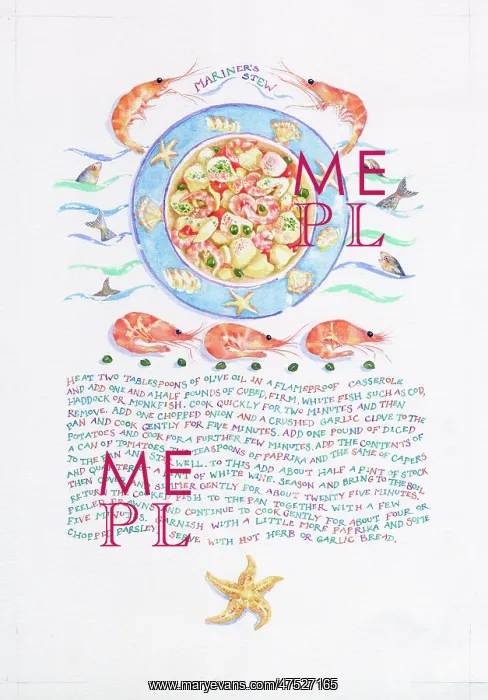 MARINER'S
STEW
ME
PL
HEAT TWO TABLESPOONS OF OLIVE OIL IN A FLAMEPROOF CASSEROLE
AND ADD ONE AND A HALF POUNDS OF CUBED, FIRM, WHITE FISH SUCH AS COD,
HADDOCK OR MONKFISH. COOK QUICKLY FOR TWO MINUTES AND THEN
REMOVE. ADD ONE CHOPPED ONION AND A CRUSHED GARLIC CLOVE TO THE
PAN AND COOK GENTLY FOR FIVE MINUTES. ADD ONE POUND OF DICED
POTATOES AND COOK FOR A FURTHER FEW MINUTES. ADD THE CONTENTS OF
A CAN OF TOMATOES, TEASPOONS OF PAPRIKA AND THE SAME OF CAPERS
TO THE PAN AND WELL. TO THIS ADD ABOUT HALF A PINT OF STOCK
AND QUARTER A PINT OF WHITE WINE. SEASON AND BRING TO THE BOIL
THEN COVER SIMMER GENTLY FOR ABOUT TWENTY FIVE MINUTES.
RETURN THE COOKED FISH TO THE PAN TOGETHER WITH A FEW
PEELED PRAWNS AND CONTINUE TO COOK GENTLY FOR ABOUT FOUR OR
FIVE MINUTES. GARNISH WITH A LITTLE MORE PAPRIKA AND SOME
CHOPPED PARSLEY. SERVE WITH HOT HERB OR GARLIC BREAD.
ME
PL
www.maryevans.com/47527165